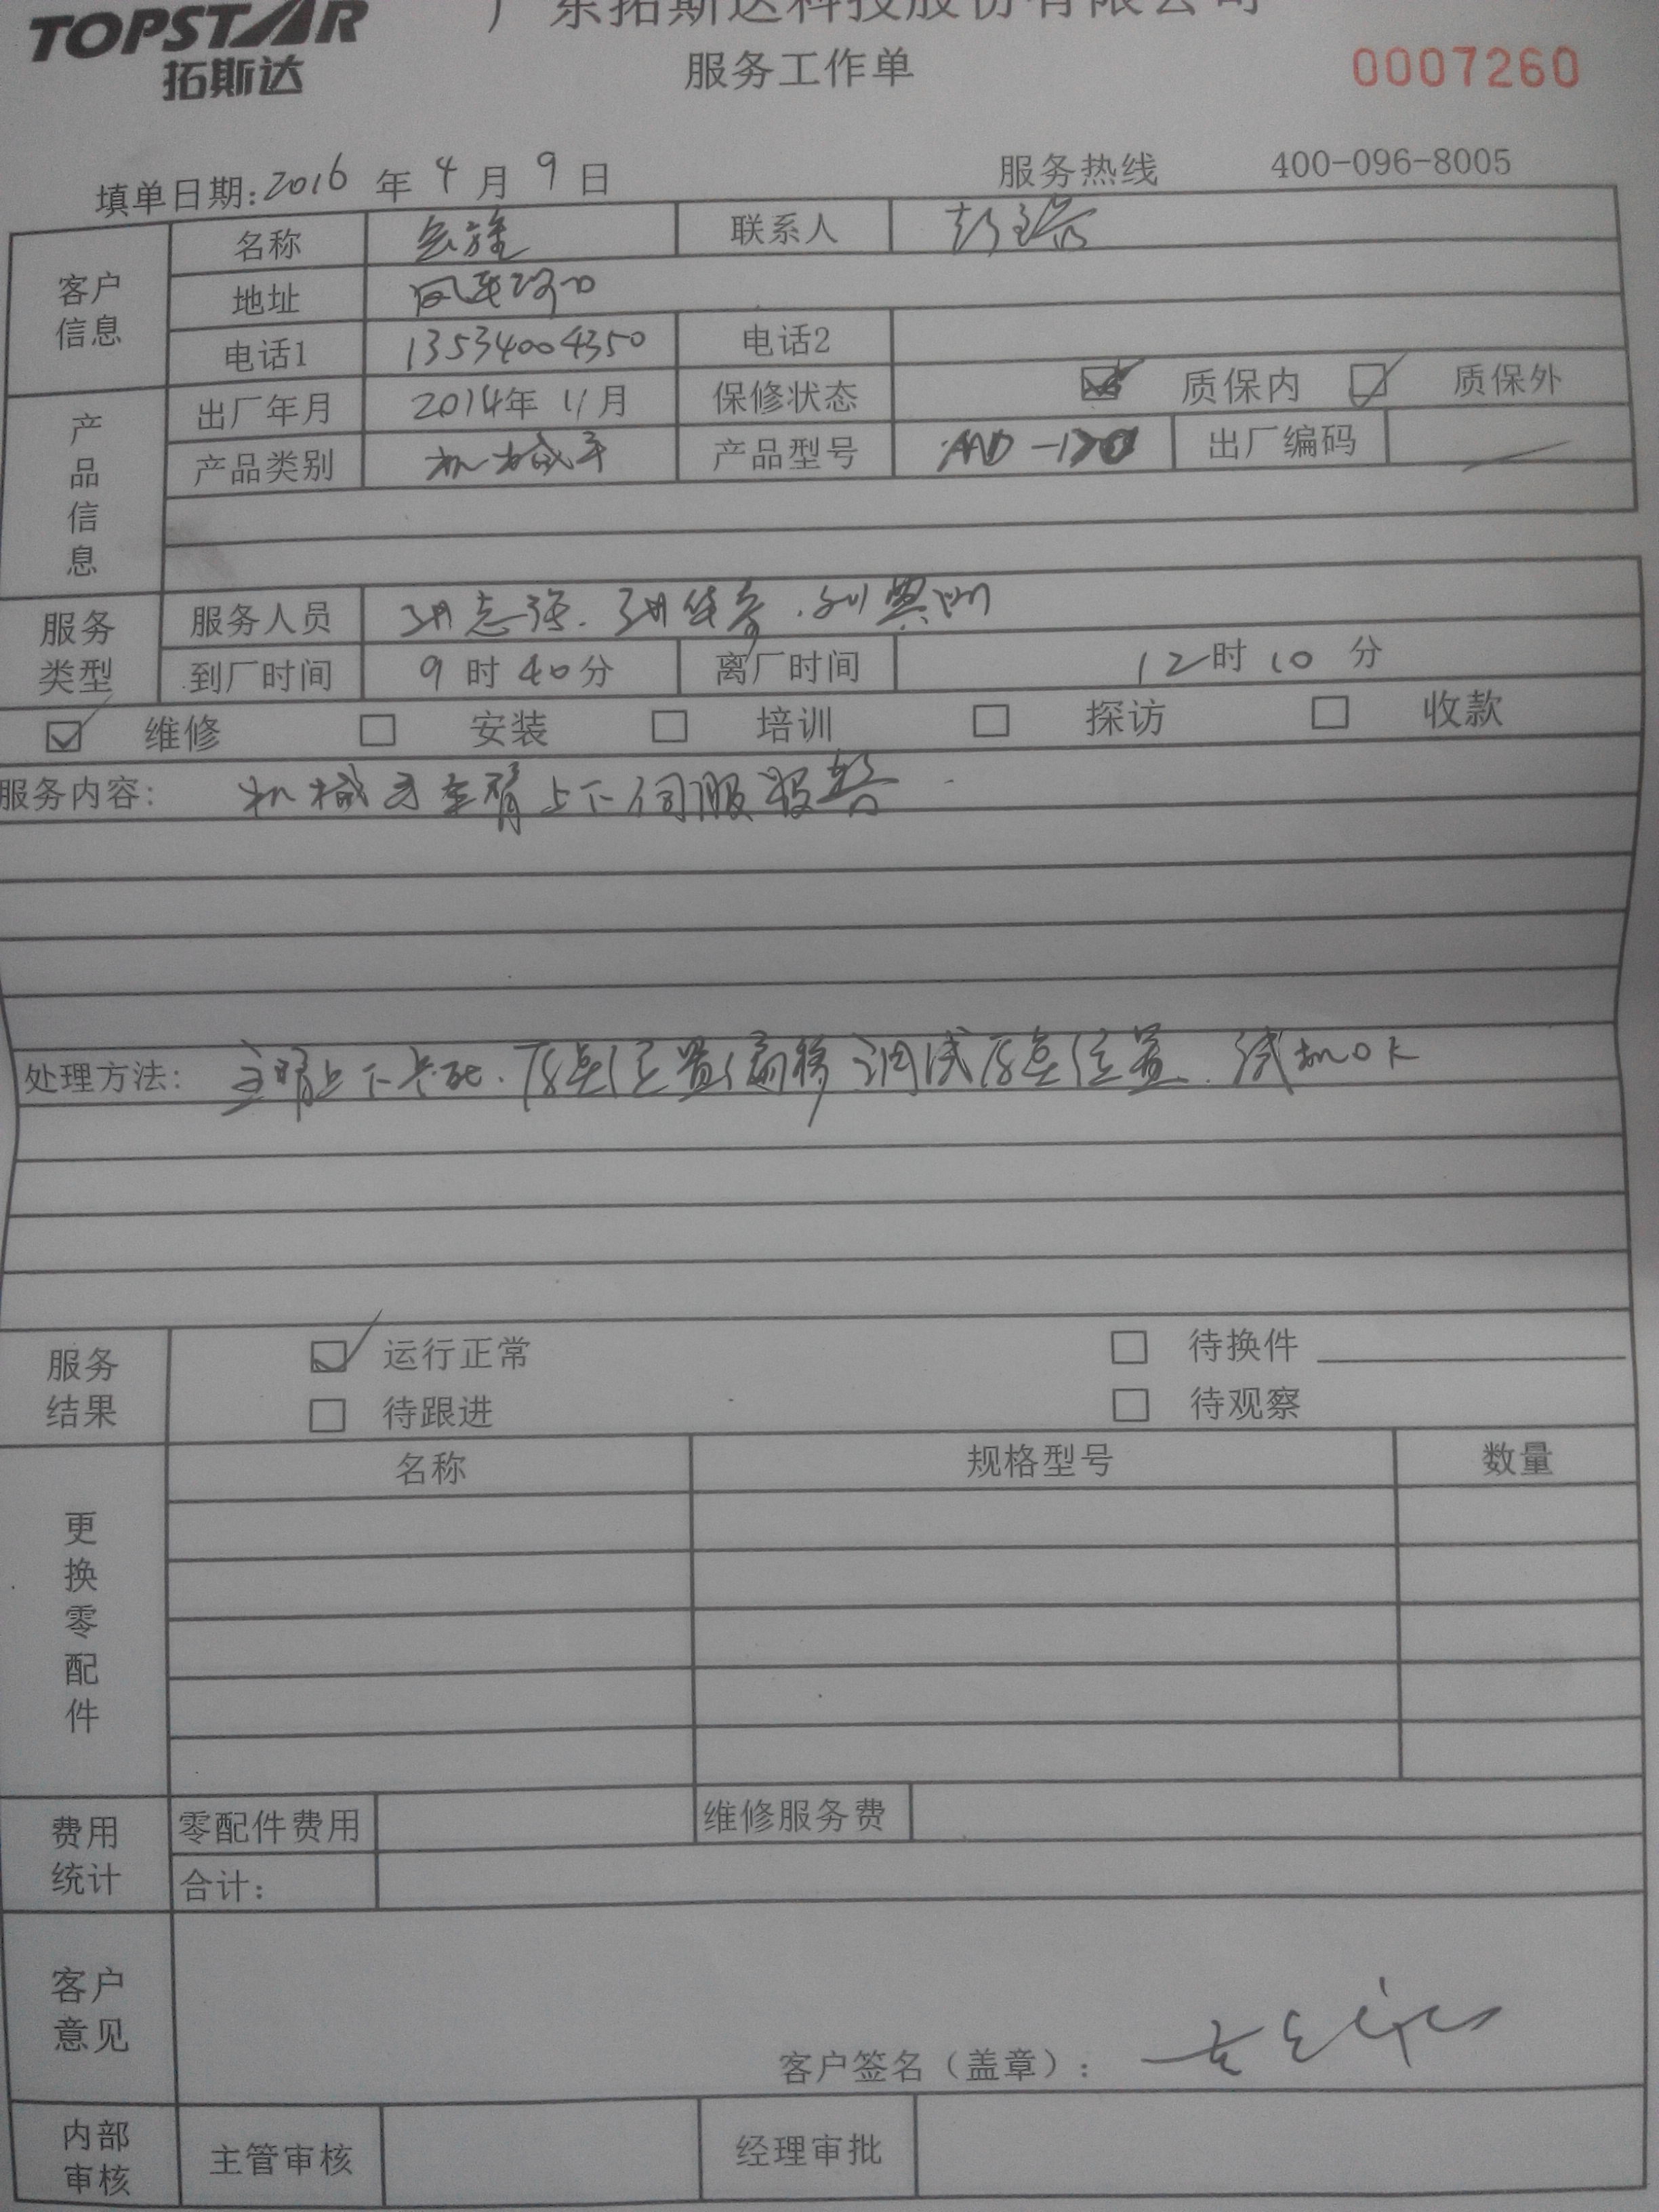 TOPSTAR
拓斯达
广东拓斯达科技股份有限公司
服务工作单
0007260
填单日期:2016 年 4 月 9 日
服务热线 400-096-8005
客户信息
名称
联系人
地址
电话1 13534004350 电话2
产品信息
出厂年月 2014年 11月 保修状态 质保内 质保外
产品类别 机械手 产品型号 出厂编码
服务类型
服务人员
到厂时间 9 时 40分 离厂时间 12时 10 分
维修 安装 培训 探访 收款
服务内容: 机械手主臂上下伺服报警
处理方法: 主臂上下卡死.原点位置偏移 调试原点位置.试机OK
服务结果
运行正常 待换件
待跟进 待观察
更换零配件
名称 规格型号 数量
费用统计
零配件费用 维修服务费
合计:
客户意见
客户签名(盖章):
内部审核
主管审核 经理审批